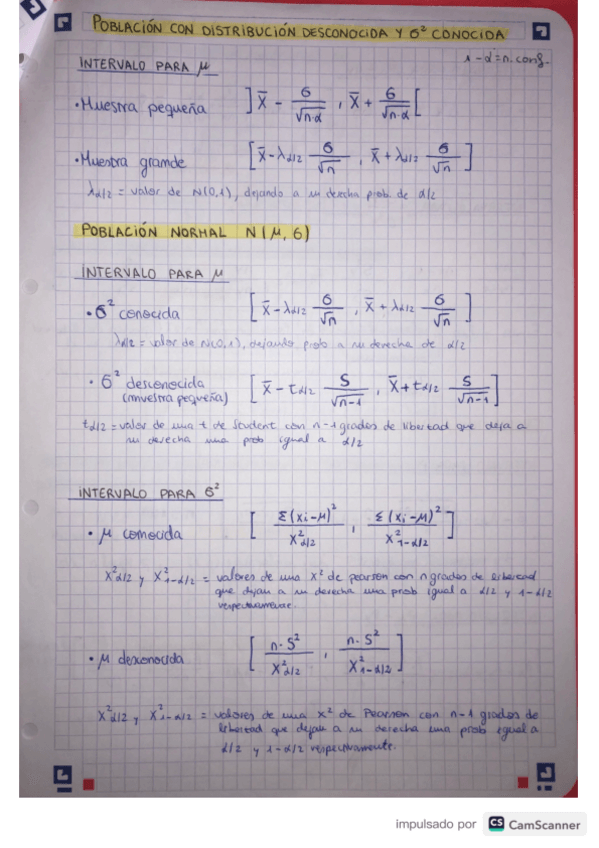 POBLACIÓN CON DISTRIBUCIÓN DESCONOCIDA Y σ² CONOCIDA
1-α = n. conf.
INTERVALO PARA μ
• Muestra pequeña ] x̄ - σ/√n·α , x̄ + σ/√n·α [
• Muestra grande [ x̄ - λα/2 σ/√n , x̄ + λα/2 σ/√n ]
λα/2 = valor de N(0,1), dejando a su derecha prob. de α/2
POBLACIÓN NORMAL N(μ, σ)
INTERVALO PARA μ
• σ² conocida [ x̄ - λα/2 σ/√n , x̄ + λα/2 σ/√n ]
λα/2 = valor de N(0,1), dejando prob a su derecha de α/2
• σ² desconocida [ x̄ - tα/2 S/√n-1 , x̄ + tα/2 S/√n-1 ]
(muestra pequeña)
tα/2 = valor de una t de Student con n-1 grados de libertad que deja a
su derecha una prob igual a α/2
INTERVALO PARA σ²
• μ conocida [ Σ(xi-μ)²/X²α/2 , Σ(xi-μ)²/X²1-α/2 ]
X²α/2 y X²1-α/2 = valores de una X² de pearson con n grados de libertad
que dejan a su derecha una prob igual a α/2 y 1-α/2
respectivamente.
• μ desconocida [ n·S²/X²α/2 , n·S²/X²1-α/2 ]
X²α/2 y X²1-α/2 = valores de una X² de Pearson con n-1 grados de
libertad que dejan a su derecha una prob igual a
α/2 y 1-α/2 respectivamente.
impulsado por CS CamScanner